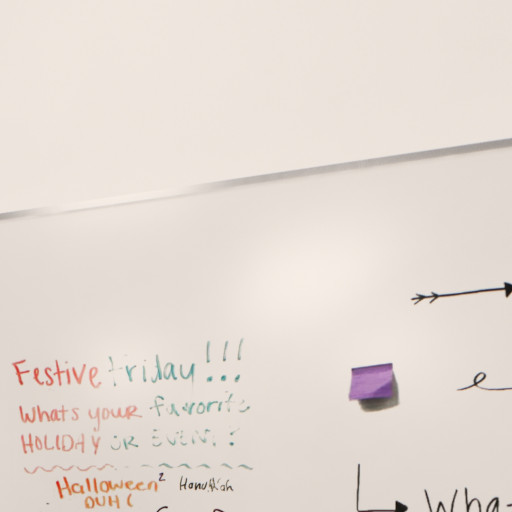 Festive friday!!!
Whats your favorite
HOLIDAY OR EVENT?
Halloween² Hanukkah
DUH!